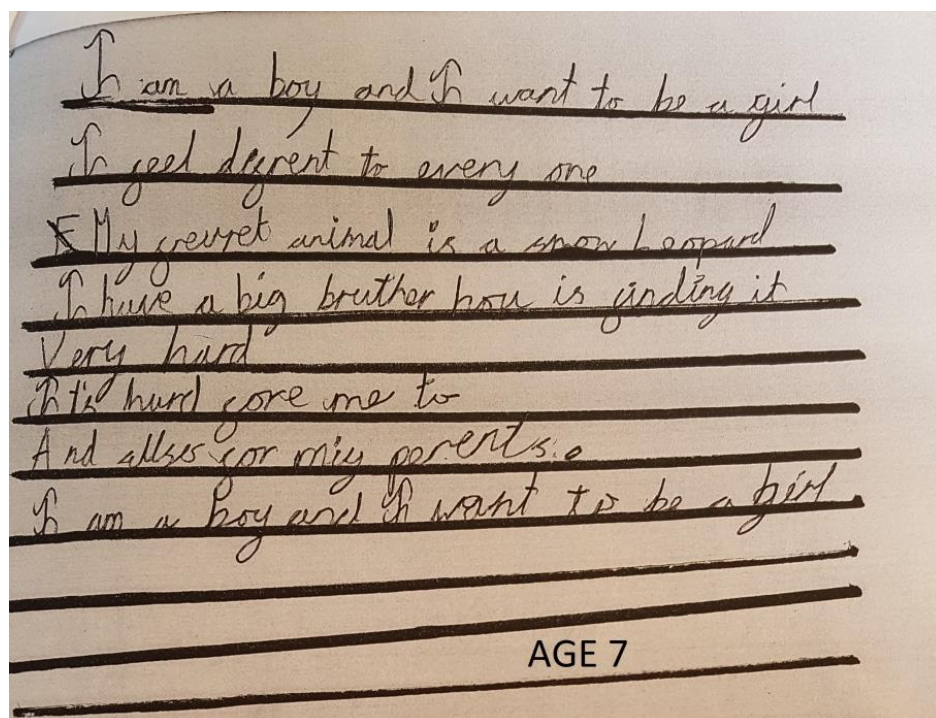 I am a boy and I want to be a girl
I feel defrent to every one
My fevret animal is a snow Leopard
I have a big bruther hou is finding it
Very hard
It's hard fore me to
And allso for miy perents.
I am a boy and I want to be a girl
AGE 7